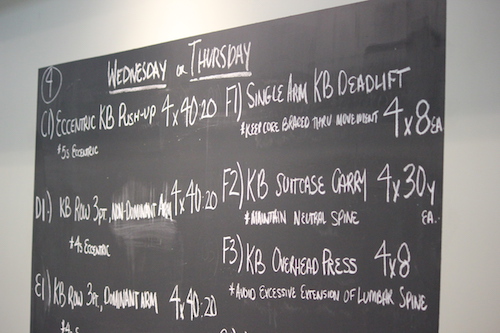 4
WEDNESDAY OR THURSDAY
C1) ECCENTRIC KB PUSH-UP 4x40:20
*5s ECCENTRIC
D1.) KB ROW 3PT, NON-DOMINANT ARM 4x40:20
*4s ECCENTRIC
E1) KB ROW 3PT, DOMINANT ARM 4x40:20
*4s
F1) SINGLE ARM KB DEADLIFT
*KEEP CORE BRACED THRU MOVEMENT 4x8EA
F2) KB SUITCASE CARRY 4x30y
*MAINTAIN NEUTRAL SPINE EA.
F3) KB OVERHEAD PRESS 4x8
*AVOID EXCESSIVE EXTENSION OF LUMBAR SPINE